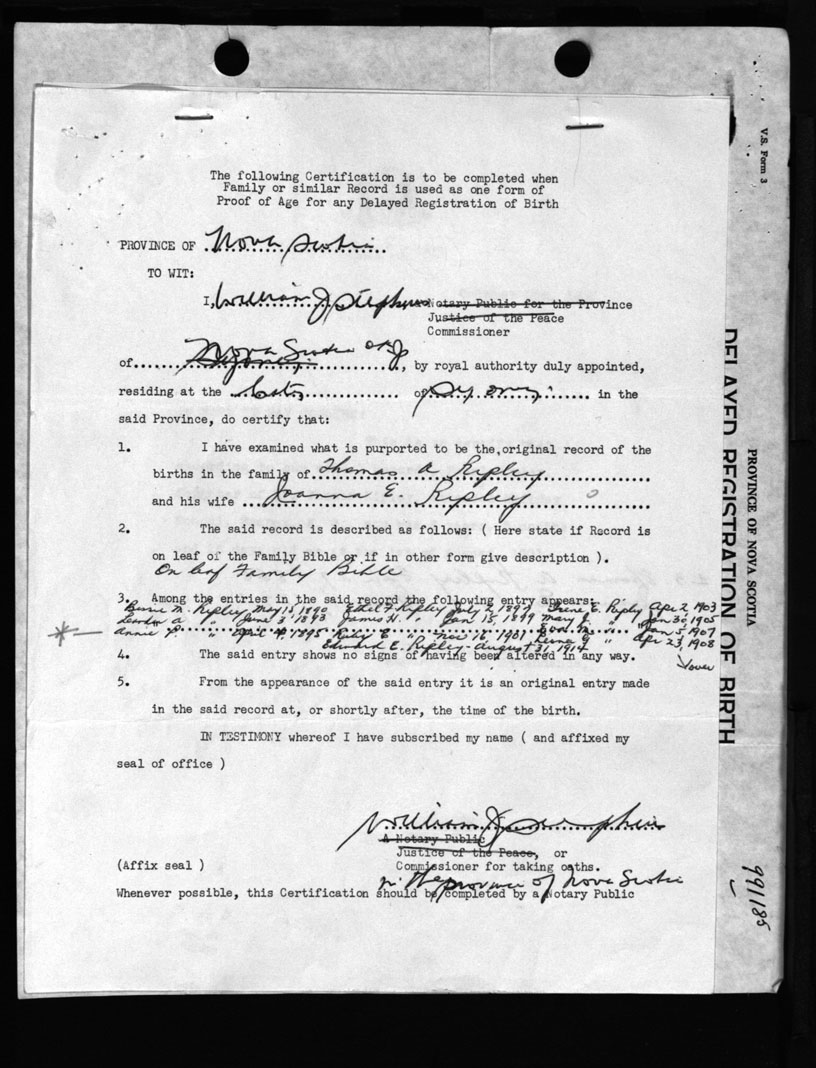 The following Certification is to be completed when
Family or similar Record is used as one form of
Proof of Age for any Delayed Registration of Birth
PROVINCE OF Nova Scotia
TO WIT:
I, William J Stephens Notary Public for the Province
Justice of the Peace
Commissioner
of Nova Scotia, by royal authority duly appointed,
residing at the of in the
said Province, do certify that:
1. I have examined what is purported to be the original record of the
births in the family of Thomas A Ripley
and his wife Joanna E. Ripley
2. The said record is described as follows: ( Here state if Record is
on leaf of the Family Bible or if in other form give description ).
On leaf Family Bible
3. Among the entries in the said record the following entry appears:
Bessie M. Ripley May 15, 1890 Ethel F Ripley July 2, 1897 Irene E. Ripley Apr 2, 1903
A. " June 3, 1893 James H. " Jan 15, 1899 Mary J. " Jan 30, 1905
Annie P. " April 4, 1895 Riley C " Nov 16, 1901 M. " Jan 5, 1907
G " Apr 23, 1908
Edward E. Ripley - August 31, 1914
over
4. The said entry shows no signs of having been altered in any way.
5. From the appearance of the said entry it is an original entry made
in the said record at, or shortly after, the time of the birth.
IN TESTIMONY whereof I have subscribed my name ( and affixed my
seal of office )
William J Stephens
A Notary Public
Justice of the Peace, or
(Affix seal ) Commissioner for taking oaths.
in the province of Nova Scotia
Whenever possible, this Certification should be completed by a Notary Public
V.S. Form 3
PROVINCE OF NOVA SCOTIA
DELAYED REGISTRATION OF BIRTH
991185